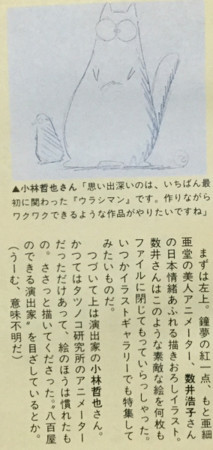 ▲小林哲也さん「思い出深いのは、いちばん最
初に関わった『ウラシマン』です。作りながら
ワクワクできるような作品がやりたいですね」
まずは左上。鐘夢の紅一点、もと亜細
亜堂の美人アニメーター、数井浩子さん
の日本情緒あふれる描きおろしイラスト。
数井さんはこのような素敵な絵を何枚も
ファイルに閉じてもっていらっしゃった。
いつかイラストギャラリーでも特集して
みたいものだ。
つづいて上は演出家の小林哲也さん。
かつてはタツノコ研究所のアニメーター
だっただけあって、絵のほうは慣れたも
の。ささっと描いてくださった。〝八百屋
のできる演出家〟を目ざしているとか。
（うーむ、意味不明だ）